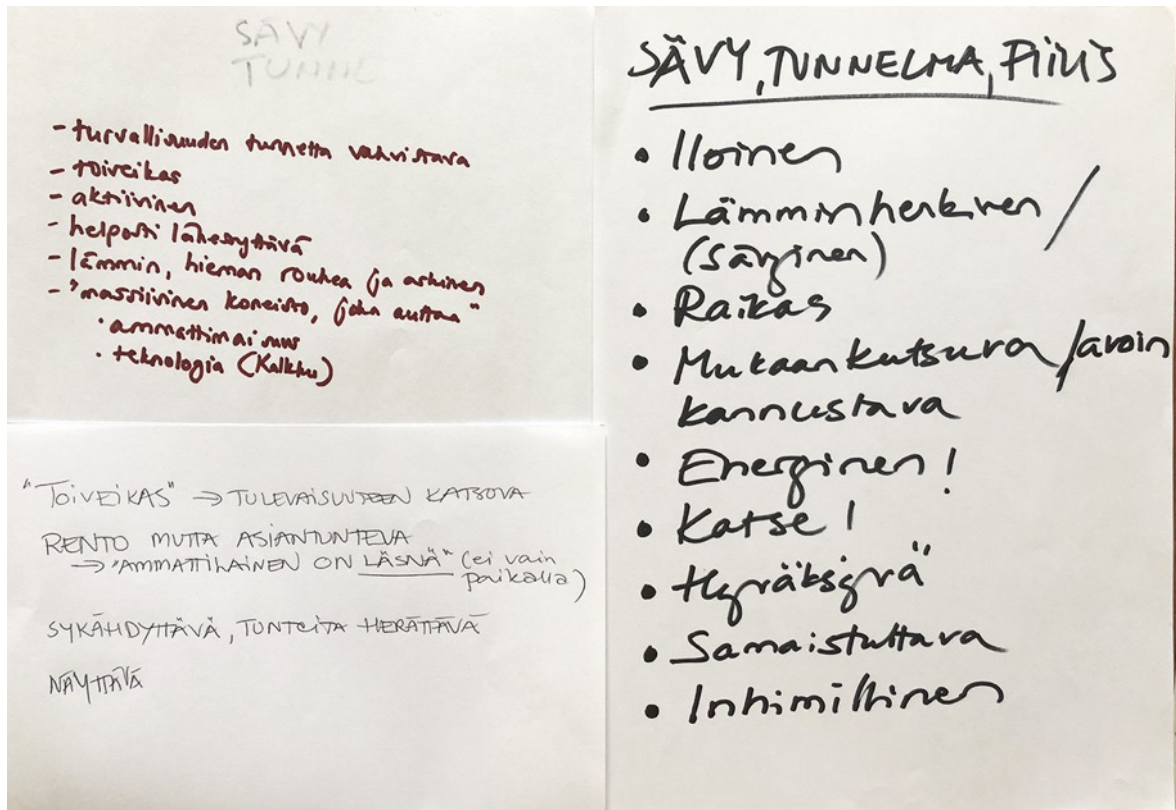 SÄVY
TUNNE
- turvallisuuden tunnetta vahvistava
- toiveikas
- aktiivinen
- helposti lähestyttävä
- lämmin, hieman rouhea ja arkinen
- "massiivinen koneisto, joka auttaa"
• ammattimaisuus
• teknologia (Kalkku)
"TOIVEIKAS" → TULEVAISUUTEEN KATSOVA
RENTO MUTTA ASIANTUNTEVA
→ "AMMATTILAINEN ON LÄSNÄ" (ei vain
paikalla)
SYKÄHDYTTÄVÄ, TUNTEITA HERÄTTÄVÄ
NÄYTTÄVÄ
SÄVY, TUNNELMA, FIILIS
• Iloinen
• Lämminhenkinen /
(sävyinen)
• Raikas
• Mukaankutsuva /avoin
kannustava
• Energinen !
• Katse !
• Hyväksyvä
• Samaistuttava
• Inhimillinen